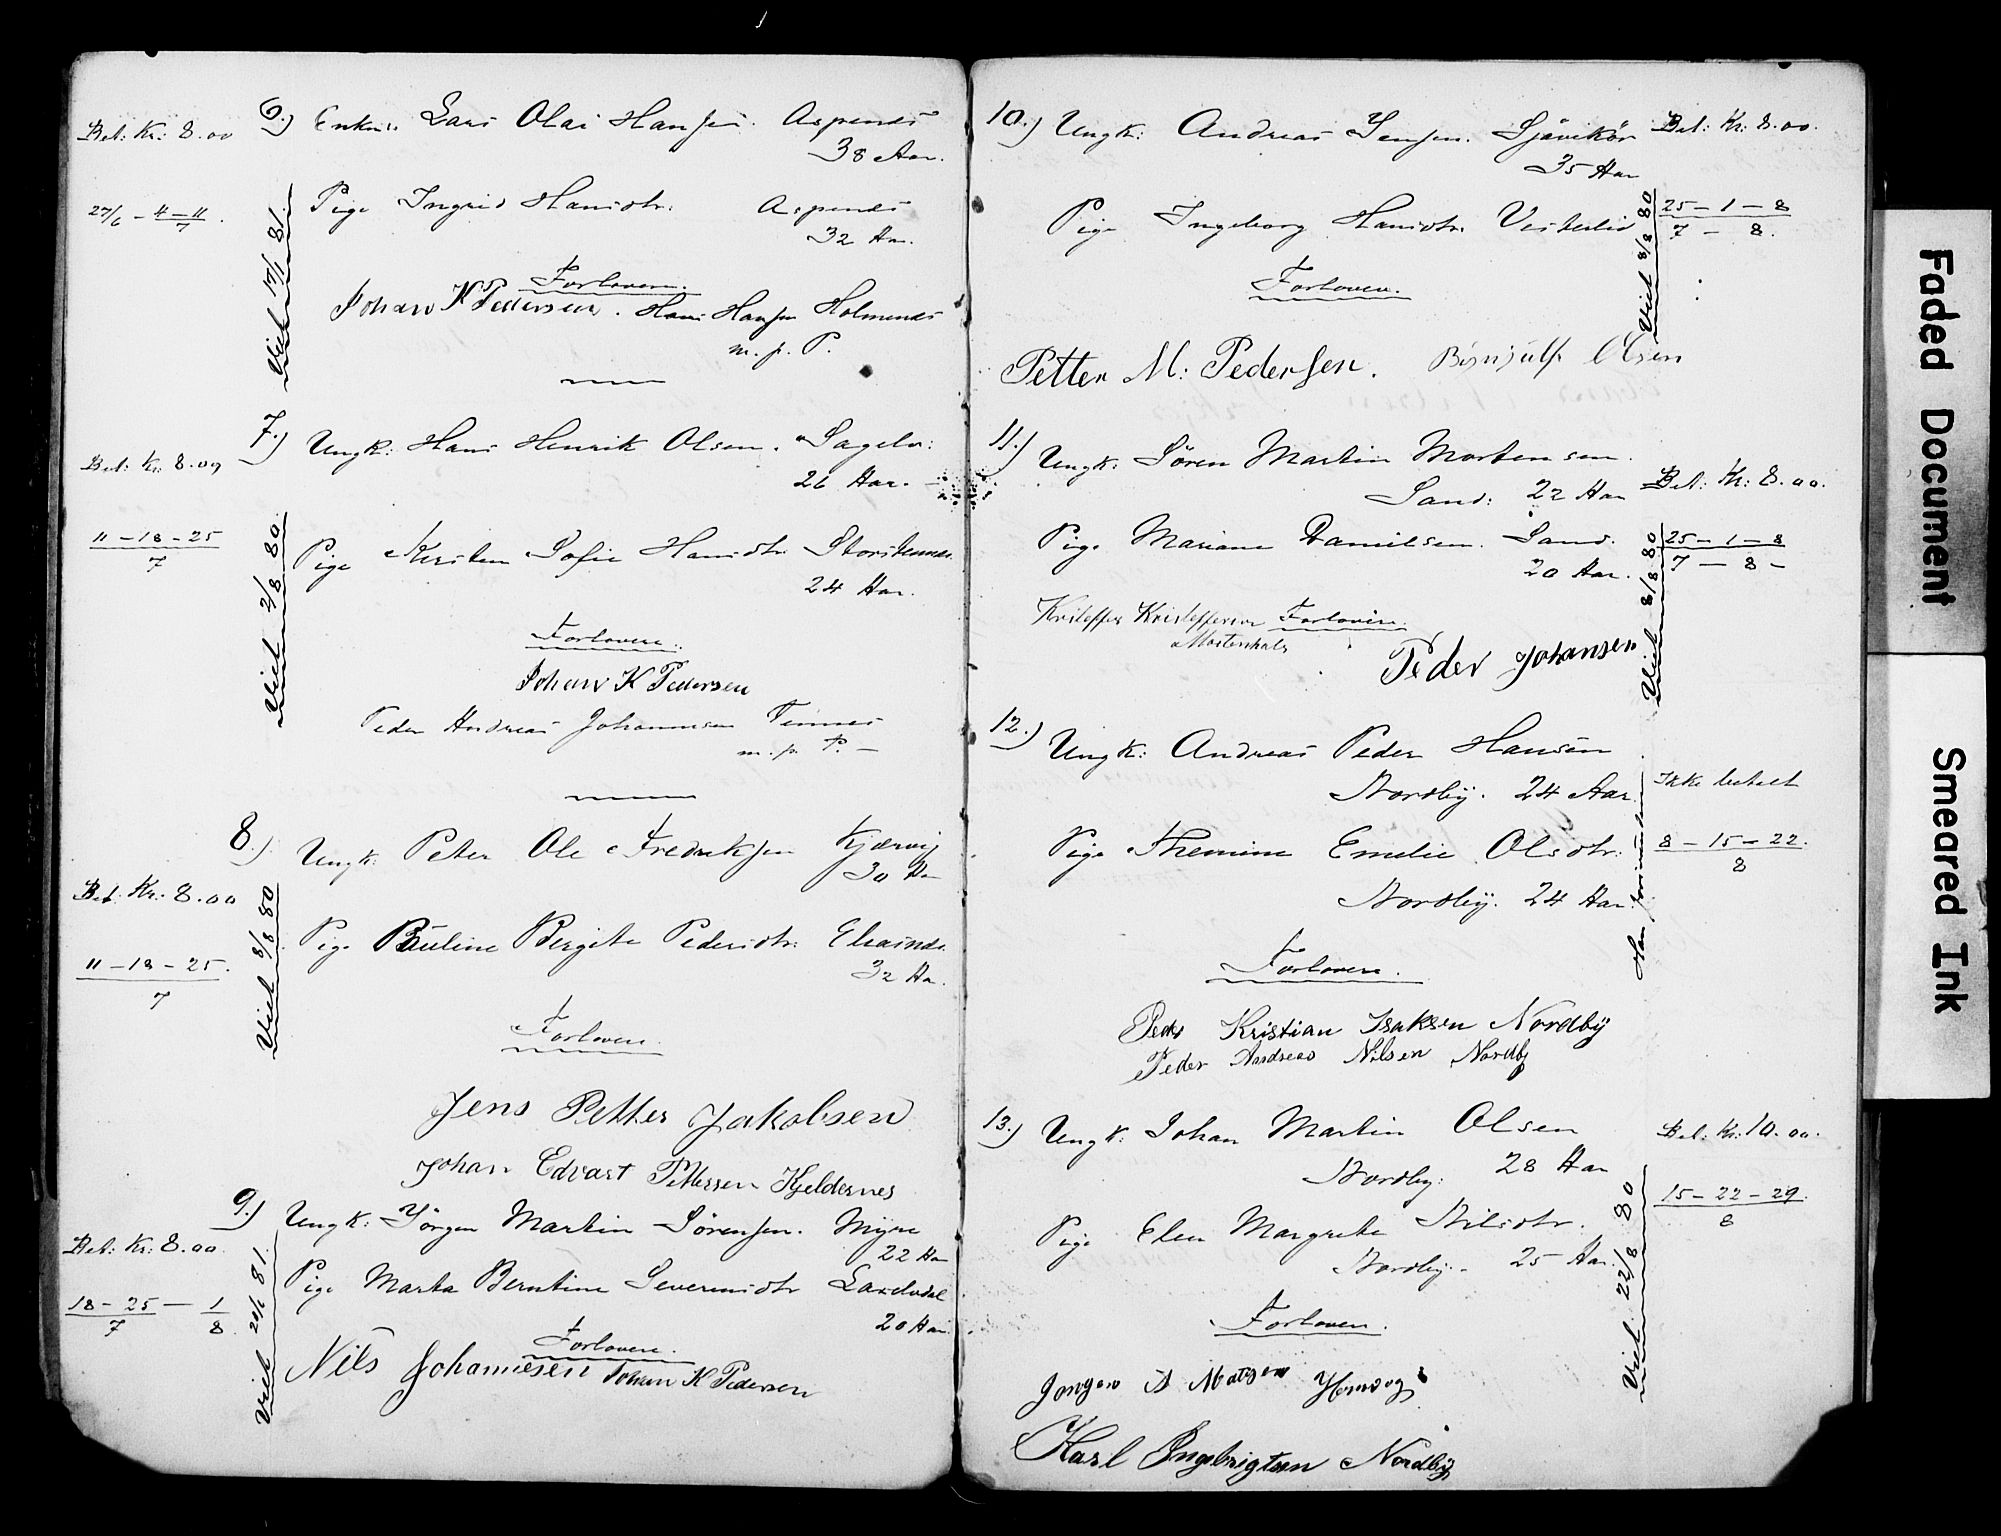 6.) Enkm. Lars Olai Hansen. Aspenes
38 Aar.
Bet: Kr: 8.00
Pige Ingrid Hansdtr. Aspenes
32 Aar.
27/6 – 4–11/7
Viet 17/1 81.
Forlovere.
Johan K Pedersen. Hans Hansen Holmenes
m. p. P.
7.) Ungk: Hans Henrik Olsen. Sagelv:
26 Aar.
Bet: Kr. 8.00
Pige Kirsten Sofie Hansdtr. Storstennes
24 Aar.
11–18–25
7
Viet 2/8 80.
Forlovere.
Johan K Pedersen
Peder Andreas Johannesen Tennes
m. p. P.
8.) Ungk: Peter Ole Fredriksen Kjærvig
30 Aar
Bet. Kr. 8.00
Pige Pauline Bergite Pedersdtr.
32 Aar.
11–18–25.
7
Viet 8/8 80
Forlovere.
Jens Petter Jakobsen
Johan Edvart Pettersen Kjeldernes
9.) Ungk: Jørgen Martin Sørensen. Myre
22 Aar
Bet: Kr: 8.00.
Pige Marta Berntine Severinsdtr Lavdvdal
20 Aar.
18–25 – 1
7 8
Viet 20/6 81.
Forlovere.
Nils Johannesen Johan K Pedersen
10.) Ungk: Andreas Jensen. Sjøvikør
35 Aar
Bet: Kr: 8.00.
Pige Ingeborg Hansdtr. Vesterlid
25–1–8
7 – 8.
Viet 8/8 80
Forlovere.
Petter M: Pedersen. Bønjulf Olsen
11.) Ungk: Søren Martin Mortensen.
Sand: 22 Aar
Bet: Kr: 8.00.
Pige Mariane Danielsen. Sand.
20 Aar.
25–1–8
7 – 8 –
Viet 8/8 80
Kristoffer Kristoffersen Forlovere.
Mortenhals
Peder Johansen
12.) Ungk: Andreas Peder Hansen
Nordby. 24 Aar.
Ikke betalt
Pige Themine Emelie Olsdtr.
Nordby. 24 Aar.
8–15–22.
8
Forlovere.
Peder Kristian Isaksen Nordby
Peder Andreas Nilsen Nordby
13.) Ungk: Johan Martin Olsen
Nordby: 28 Aar
Bet: Kr: 10.00.
Pige Elen Margrete Nilsdtr.
Nordby. 25 Aar.
15–22–29.
8
Viet 22/8 80
Forlovere.
Jørgen A Matsen
Karl Ingebrigtsen Nordby
Faded Document
Smeared Ink